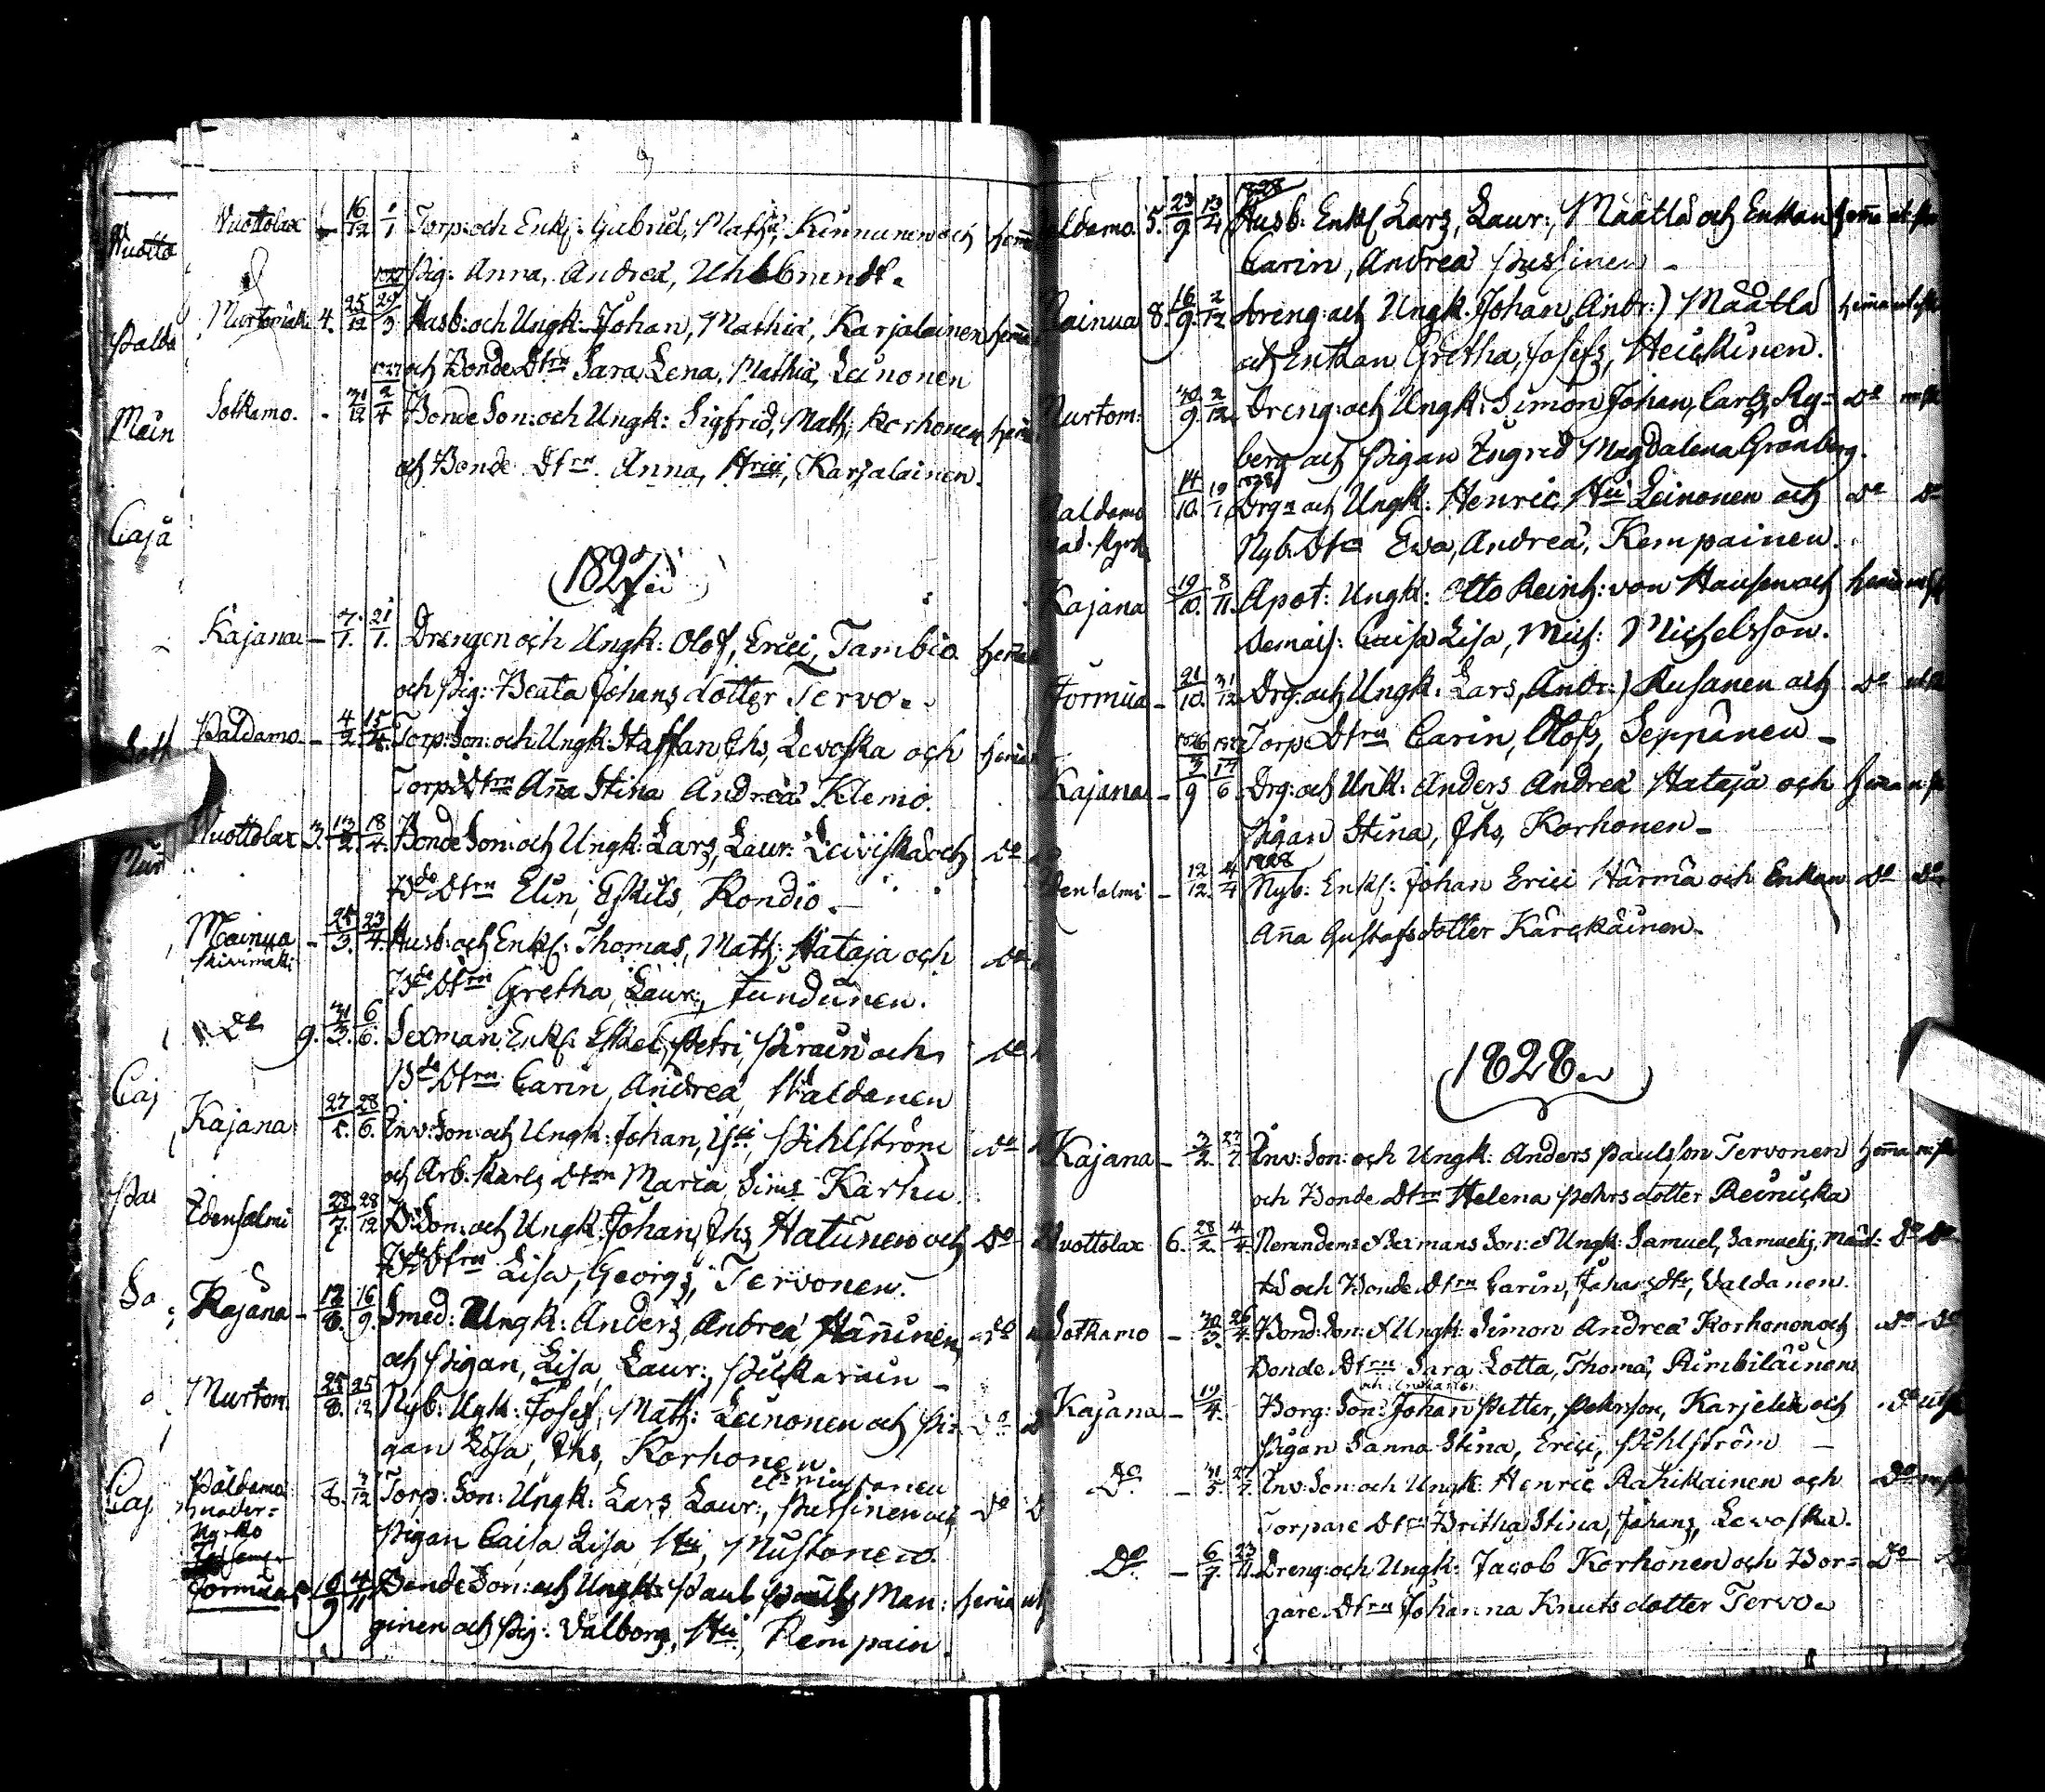 Wuotto
Wuottolax 16/12 1/1 Torp: och Enkl: Gabriel, Math:, Kinnunen och hem
1827 Pig: Anna, Andreæ, Uhlbrandt.
Palda
Murtomäki 4. 25/12 29/3 Husb: och Ungk: Johan, Mathiæ, Karjalainen hem
1827 och Bonde Dtrn Sara Lena, Mathiæ, Leinonen
Main
Sotkamo. - 31/12 2/4 Bonde Son: och Ungk: Sigfrid, Math: Korhonen hem
och Bonde Dtrn Anna, Hrici, Karjalainen.
Caja
1827
Kajana - 7/1. 21/1. Drengen och Ungk: Olof, Erici, Tambio hem
och Pig: Beata Johans dotter Tervo.
Soth
Paldamo - 4/2. 15/4. Torp: Son: och Ungk: Staffan Jhs, Levoska och hem
Torp: Dtrn Aña Stina Andreæ Klemo.
Mur
Wuottolax 3. 13/2. 18/4. Bonde Son: och Ungk: Lars, Laur: Leiviskä och Do
Bde Dtrn Elin, Eskils, Kondio.
Mainua - 25/3. 23/4. Husb: och Enkl: Thomas, Math: Hataja och Do
Kivimäki
Bde Dtrn Gretha, Laur:, Tundunen.
Do 9. 31/3. 6/6. Sexman: Enkl: Eskel, Petri, Pirain och Do
Bde Dtrn Carin, Andreæ, Waldanen
Caj
Kajana 27/5. 28/6. Inv: Son: och Ungk: Johan, Pihlström Do
och Arb: Karls Dtrn Maria Sims Karhu.
Pal
Idensalmi 23/7. 28/12 B: Son: och Ungk: Johan, Jhs Hatunen och Do
Bde Dtrn Lisa, Georgs, Tervonen.
So
Kajana - 12/8. 16/9. Smed: Ungk: Anders, Andreæ, Häñinen Do
och Pigan, Lisa, Laur:, Piskarain -
Murtom. 25/8. 25/12 Nyb: Ungk: Josef, Math: Leinonen och Pi= Do
gan Lisa, Jhs, Korhonen.
Caj
Paldamo 8. 3/12 Torp: Son: Ungk: Lars Laur:, Pussinen och Do
Pigan Caisa Lisa Hri, Mustonen.
Jormua 9 4/11 Bonde Son: och Ungk: Paul Pauls Man: hema uts
ginen och Pig: Valborg, Hri, Kempain.
1828
aldamo 5. 23/9 13/4 Husb: Enkl Lars, Laur:, Määttä och Enkan hema
Carin, Andreæ Pussinen -
Mainua 8. 16/9. 2/12 dreng: och Ungk: Johan, Andr:) Määttä hema
och Enkan Gretha, Josefs, Heickinen.
Murtom: 30/9. 2/12. Dreng: och Ungk: Simon Johan, Carls, Ry= Do
berg och Pigan Ingrid Magdalena Grönberg.
Paldamo 14/10. 19/1 1828 Drgn och Ungk: Henric, Hri Leinonen och Do Do
Nyb: Dtrn Eva, Andreæ, Kempainen.
Kajana 19/10. 8/11. Apot: Ungk: Otto Reinh: von Hausen och hema
Demois: Caisa Lisa, Mich: Michelsson.
Jormua - 21/10. 31/12 Drg: och Ungk: Lars, Andr:) Rusanen och Do
1826 1827 Torp: Dtrn Carin, Olofs, Seppänen -
Kajana - 3/9 17/6 Drg: och Unk: Anders Andreæ Hataja och hema
Pigan Stina, Jhs, Korhonen -
1828
Idensalmi - 12/12. 4/4 Nyb: Enkl: Johan Erici Härmä och Enkan Do Do
Aña Gustafsdotter Kärckäinen.
1828
Kajana - 3/2. 27/7. Inv: Son: och Ungk: Anders Paulsson Tervonen hema
och Bonde Dtrn Helena Pehrs dotter Reinicka
Wuottolax 6. 28/2. 4/4. Sexmans Son: & Ungk: Samuel, Samuelis, Määt: Do Do
tä och Bonde Dtrn Carin, Johans dtr, Valdanen.
Sotkamo - 30/3. 26/4. Bond: Son: & Ungk: Simon Andreæ Korhonen och Do Do
Bonde Dtrn Sara Lotta, Thomæ, Rimbiläinen
Kajana - 19/4. Borg: Son: Johan Petter, Pehrsson, Karjelin och Do
Pigan Sanna Stina, Erici, Pihlström -
Do - 31/5. 27/7. Inv: Son: och Ungk: Henric Rahikainen och Do
Torpare Dtrn Britha Stina, Johans, Levoska.
Do - 6/7. 23/11. Dreng: och Ungk: Jacob Korhonen och Bor= Do
gare Dtrn Johanna Knuts dotter Tervo